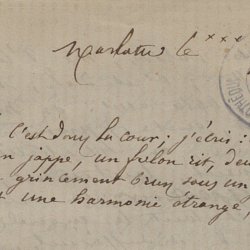 Marlotte le xxx
c'est dans la cour ; j'écris :
n jappe, un frelon rit, deu
grincement brun sous un
t une harmonie étrange